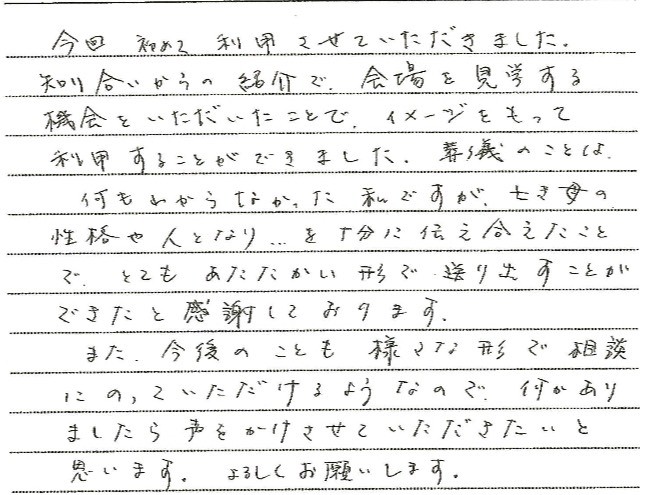 今回 初めて 利用させていただきました。
知り合いからの紹介で、会場を見学する
機会をいただいたことで、イメージをもって
利用することができました。葬儀のことは、
何もわからなかった私ですが、亡き母の
性格や人となり…を十分に伝え合えたこと
で、とてもあたたかい形で送り出すことが
できたと感謝しております。
また、今後のことも様々な形で相談
にのっていただけるようなので、何かあり
ましたら声をかけさせていただきたいと
思います。よろしくお願いします。